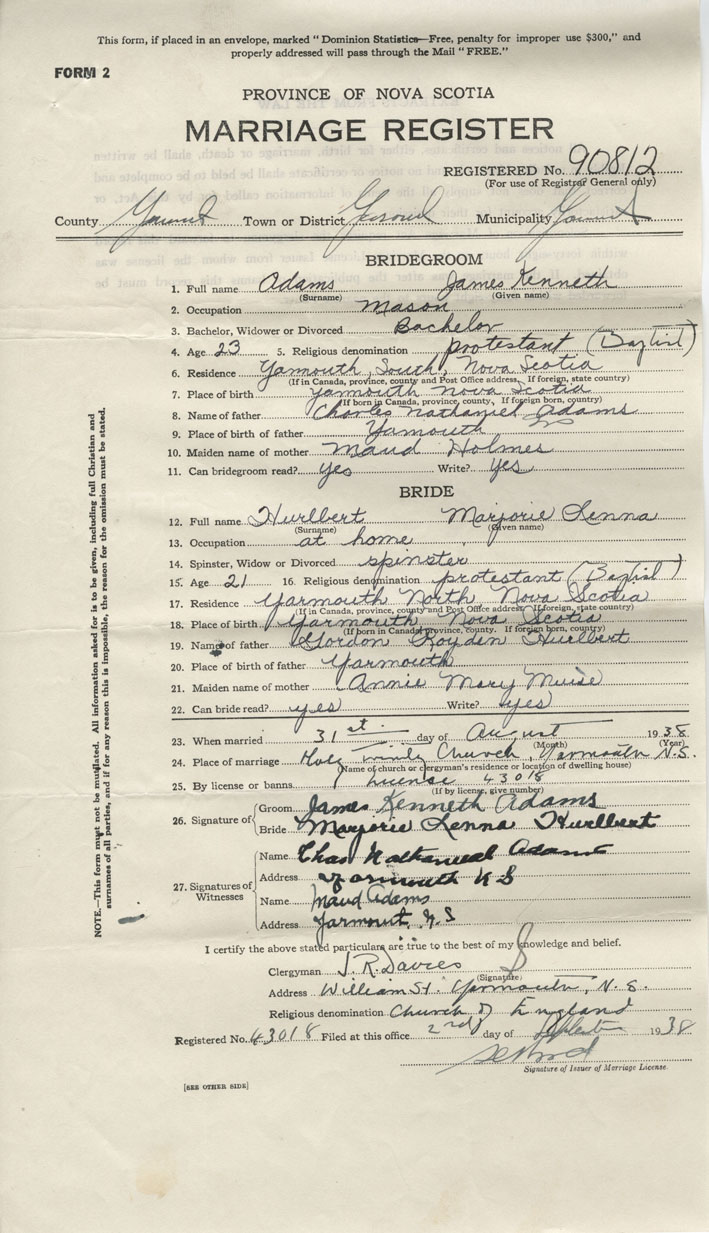 This form, if placed in an envelope, marked "Dominion Statistics—Free, penalty for improper use $300," and
properly addressed will pass through the Mail "FREE."
FORM 2
PROVINCE OF NOVA SCOTIA
MARRIAGE REGISTER
REGISTERED No. 90812
(For use of Registrar General only)
County Town or District Municipality
BRIDEGROOM
1. Full name Adams James Kenneth
(Surname) (Given name)
2. Occupation Mason
3. Bachelor, Widower or Divorced Bachelor
4. Age 23 5. Religious denomination protestant (Baptist)
6. Residence Yamouth, South, Nova Scotia
(If in Canada, province, county and Post Office address. If foreign, state country)
7. Place of birth Yamouth Nova Scotia
(If born in Canada, province, county. If foreign born, country)
8. Name of father Charles Nathaniel Adams
9. Place of birth of father Yamouth
10. Maiden name of mother Maud Holmes
11. Can bridegroom read? yes Write? yes
BRIDE
12. Full name Hurlbert Marjorie Lenna
(Surname) (Given name)
13. Occupation at home
14. Spinster, Widow or Divorced spinster
15. Age 21 16. Religious denomination protestant (Baptist)
17. Residence Yarmouth North Nova Scotia
(If in Canada, province, county and Post Office address. If foreign, state country)
18. Place of birth Yarmouth Nova Scotia
(If born in Canada, province, county. If foreign born, country)
19. Name of father Gordon Royden Hurlbert
20. Place of birth of father Yarmouth
21. Maiden name of mother Annie Mary Muise
22. Can bride read? yes Write? yes
23. When married 31st day of August 1938
(Month) (Year)
24. Place of marriage Holy Trinity Church, Yarmouth N.S.
(Name of church or clergyman's residence or location of dwelling house)
25. By license or banns License 43018
(If by license, give number)
26. Signature of Groom James Kenneth Adams
Bride Marjorie Lenna Hurlbert
27. Signatures of Witnesses
Name Chas Nathanieal Adams
Address Yarmouth N S
Name Maud Adams
Address Yarmout, N.S
I certify the above stated particulars are true to the best of my knowledge and belief.
Clergyman J. R. Davies
(Signature)
Address William St. Yarmouth, N.S.
Religious denomination Church of England
Registered No. 43018 Filed at this office 2nd day of 1938
Signature of Issuer of Marriage License.
[SEE OTHER SIDE]
NOTE.—This form must not be mutilated. All information asked for is to be given, including full Christian and
surnames of all parties, and if for any reason this is impossible, the reason for the omission must be stated.